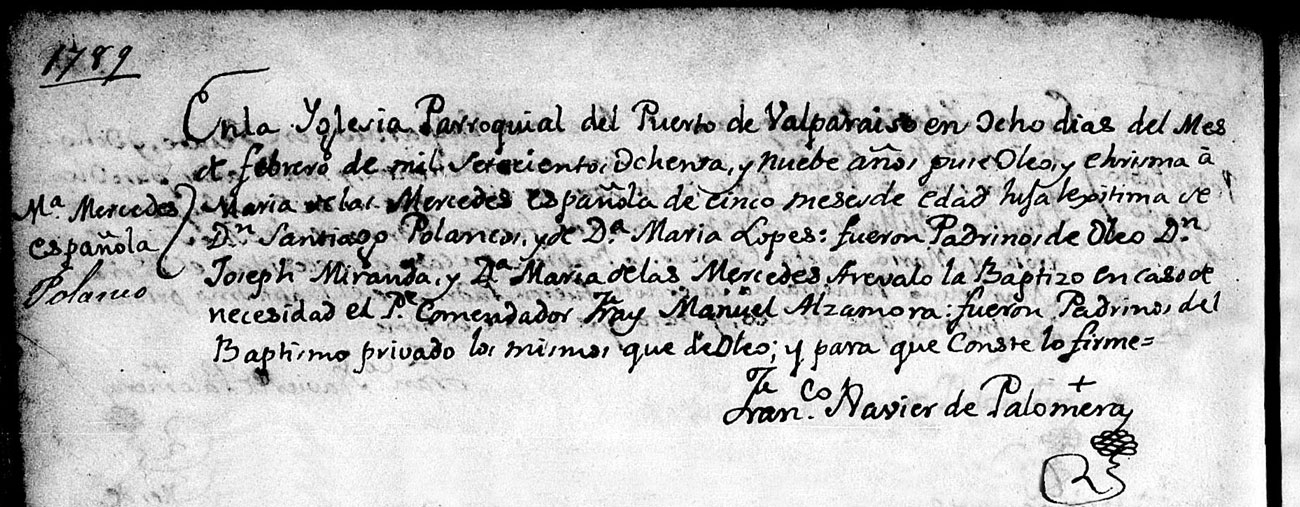 1789
En la Yglesia Parroquial del Puerto de Valparaiso en Ocho dias del Mes
de febrero de mil setecientos, Ochenta, y nuebe años puse Oleo, y Chrisma à
Mª Mercedes
española
Polanco
Maria de las Mercedes española de cinco meses de edad hija lexitima de
Dn Santiago Polancos, y de Dª Maria Lopes: fueron Padrinos de Oleo Dn
Joseph Miranda, y Dª Maria de las Mercedes Arevalo la Baptizo en caso de
necesidad el Pe Comendador Fray Manuel Alzamora: fueron Padrinos del
Baptismo privado los mismos que de Oleo; y para que Conste lo firme=
Franco Xavier de Palomera